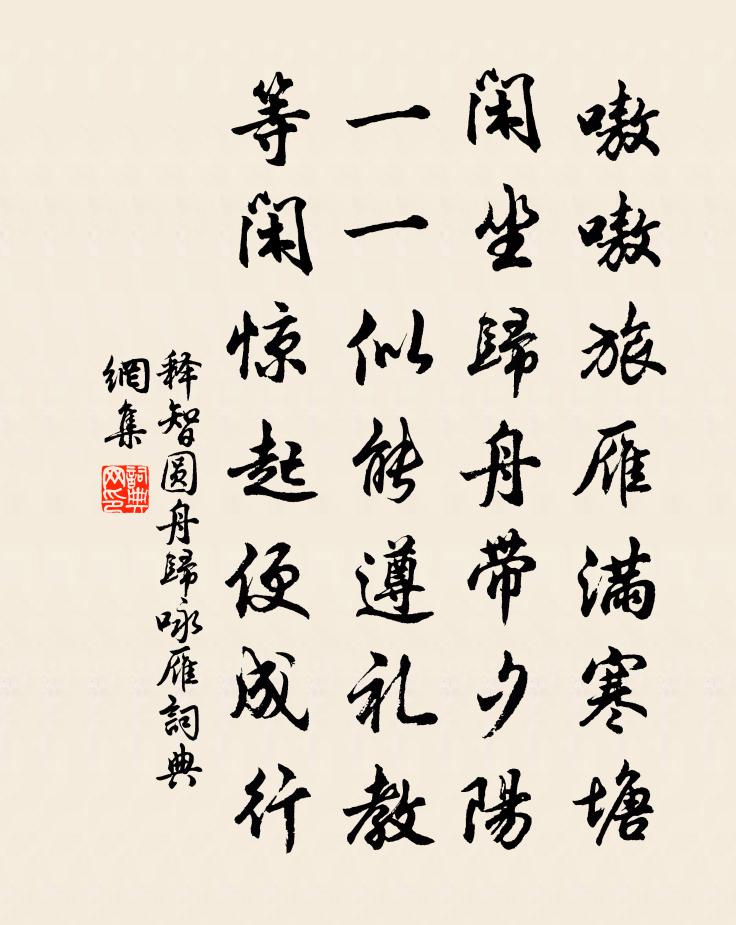 嗷嗷旅雁满寒塘
闲坐歸舟带夕陽
一一似能遵礼教
等闲惊起便成行
释智圆舟歸咏雁詞典
網集
詞典网印